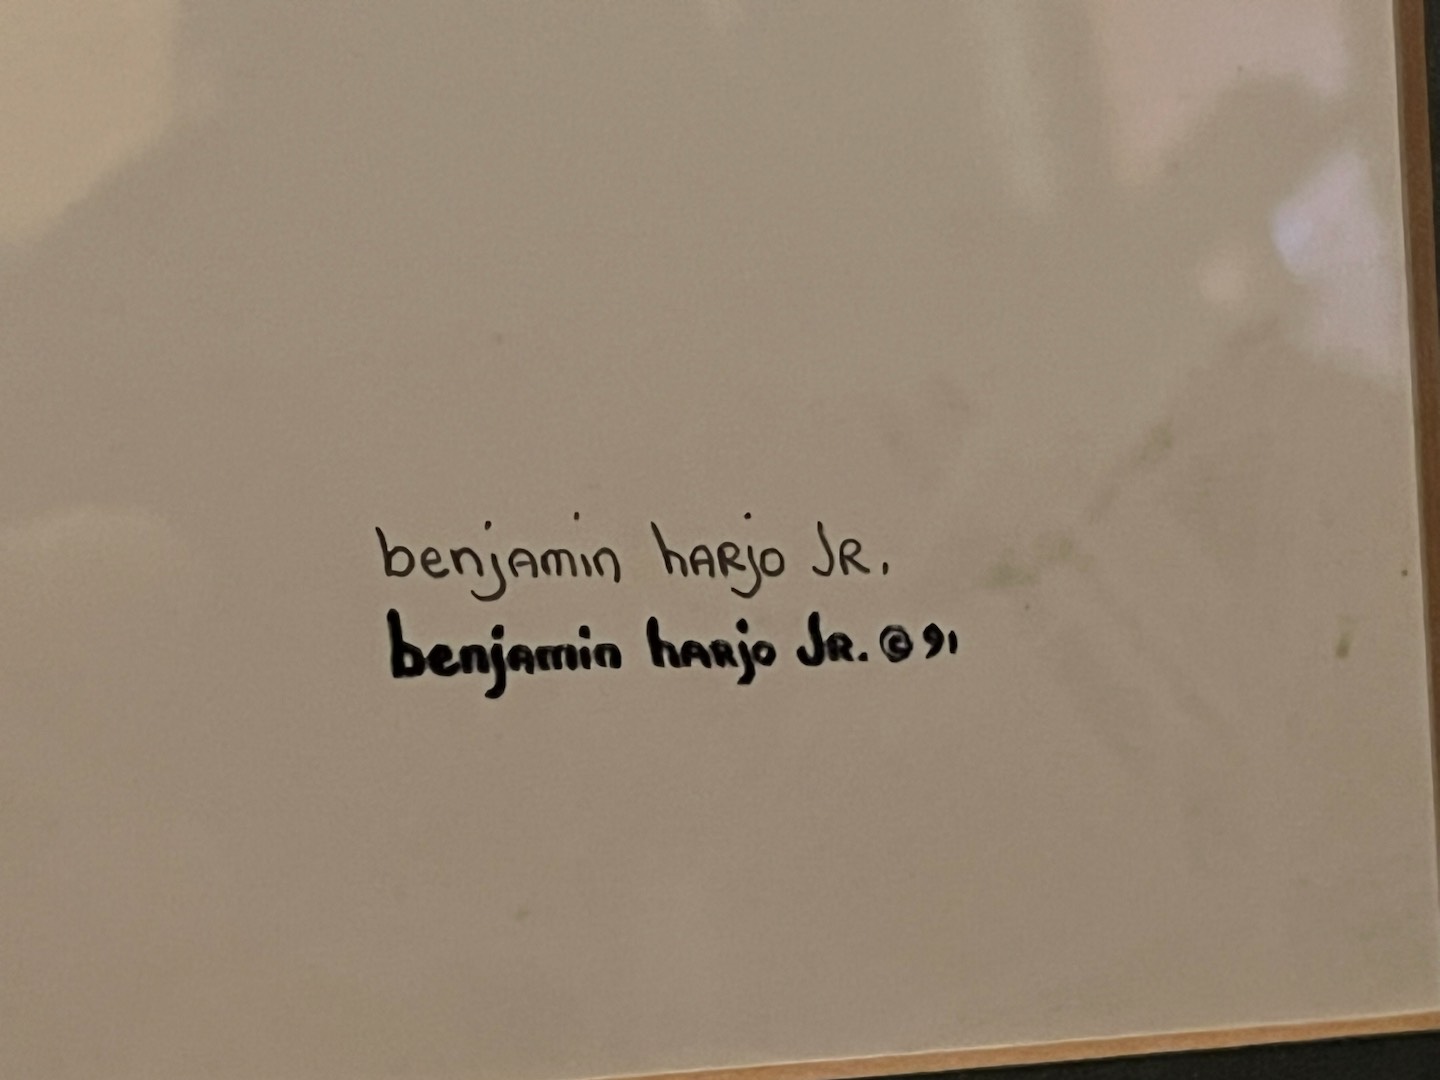 benjamin harjo Jr.
benjamin harjo Jr. © 91